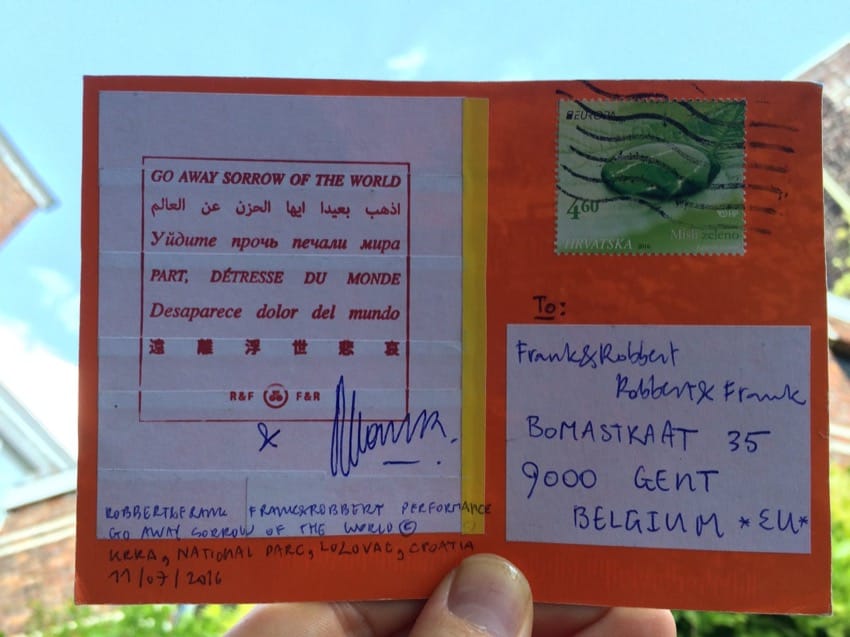 GO AWAY SORROW OF THE WORLD
اذهب بعيدا ايها الحزن عن العالم
Уйдите прочь печали мира
PART, DÉTRESSE DU MONDE
Desaparece dolor del mundo
遠 離 浮 世 悲 哀
R&F F&R
&
ROBBERT&FRANK FRANK&ROBBERT PERFORMANCE
GO AWAY SORROW OF THE WORLD ©
KRKA, NATIONAL PARC, LOZOVAC, CROATIA
11/07/2016
EUROPA
4.60
HP
Misli zeleno
HRVATSKA 2016
To:
Frank&Robbert
Robbert&Frank
BOMASTRAAT 35
9000 GENT
BELGIUM *EU*